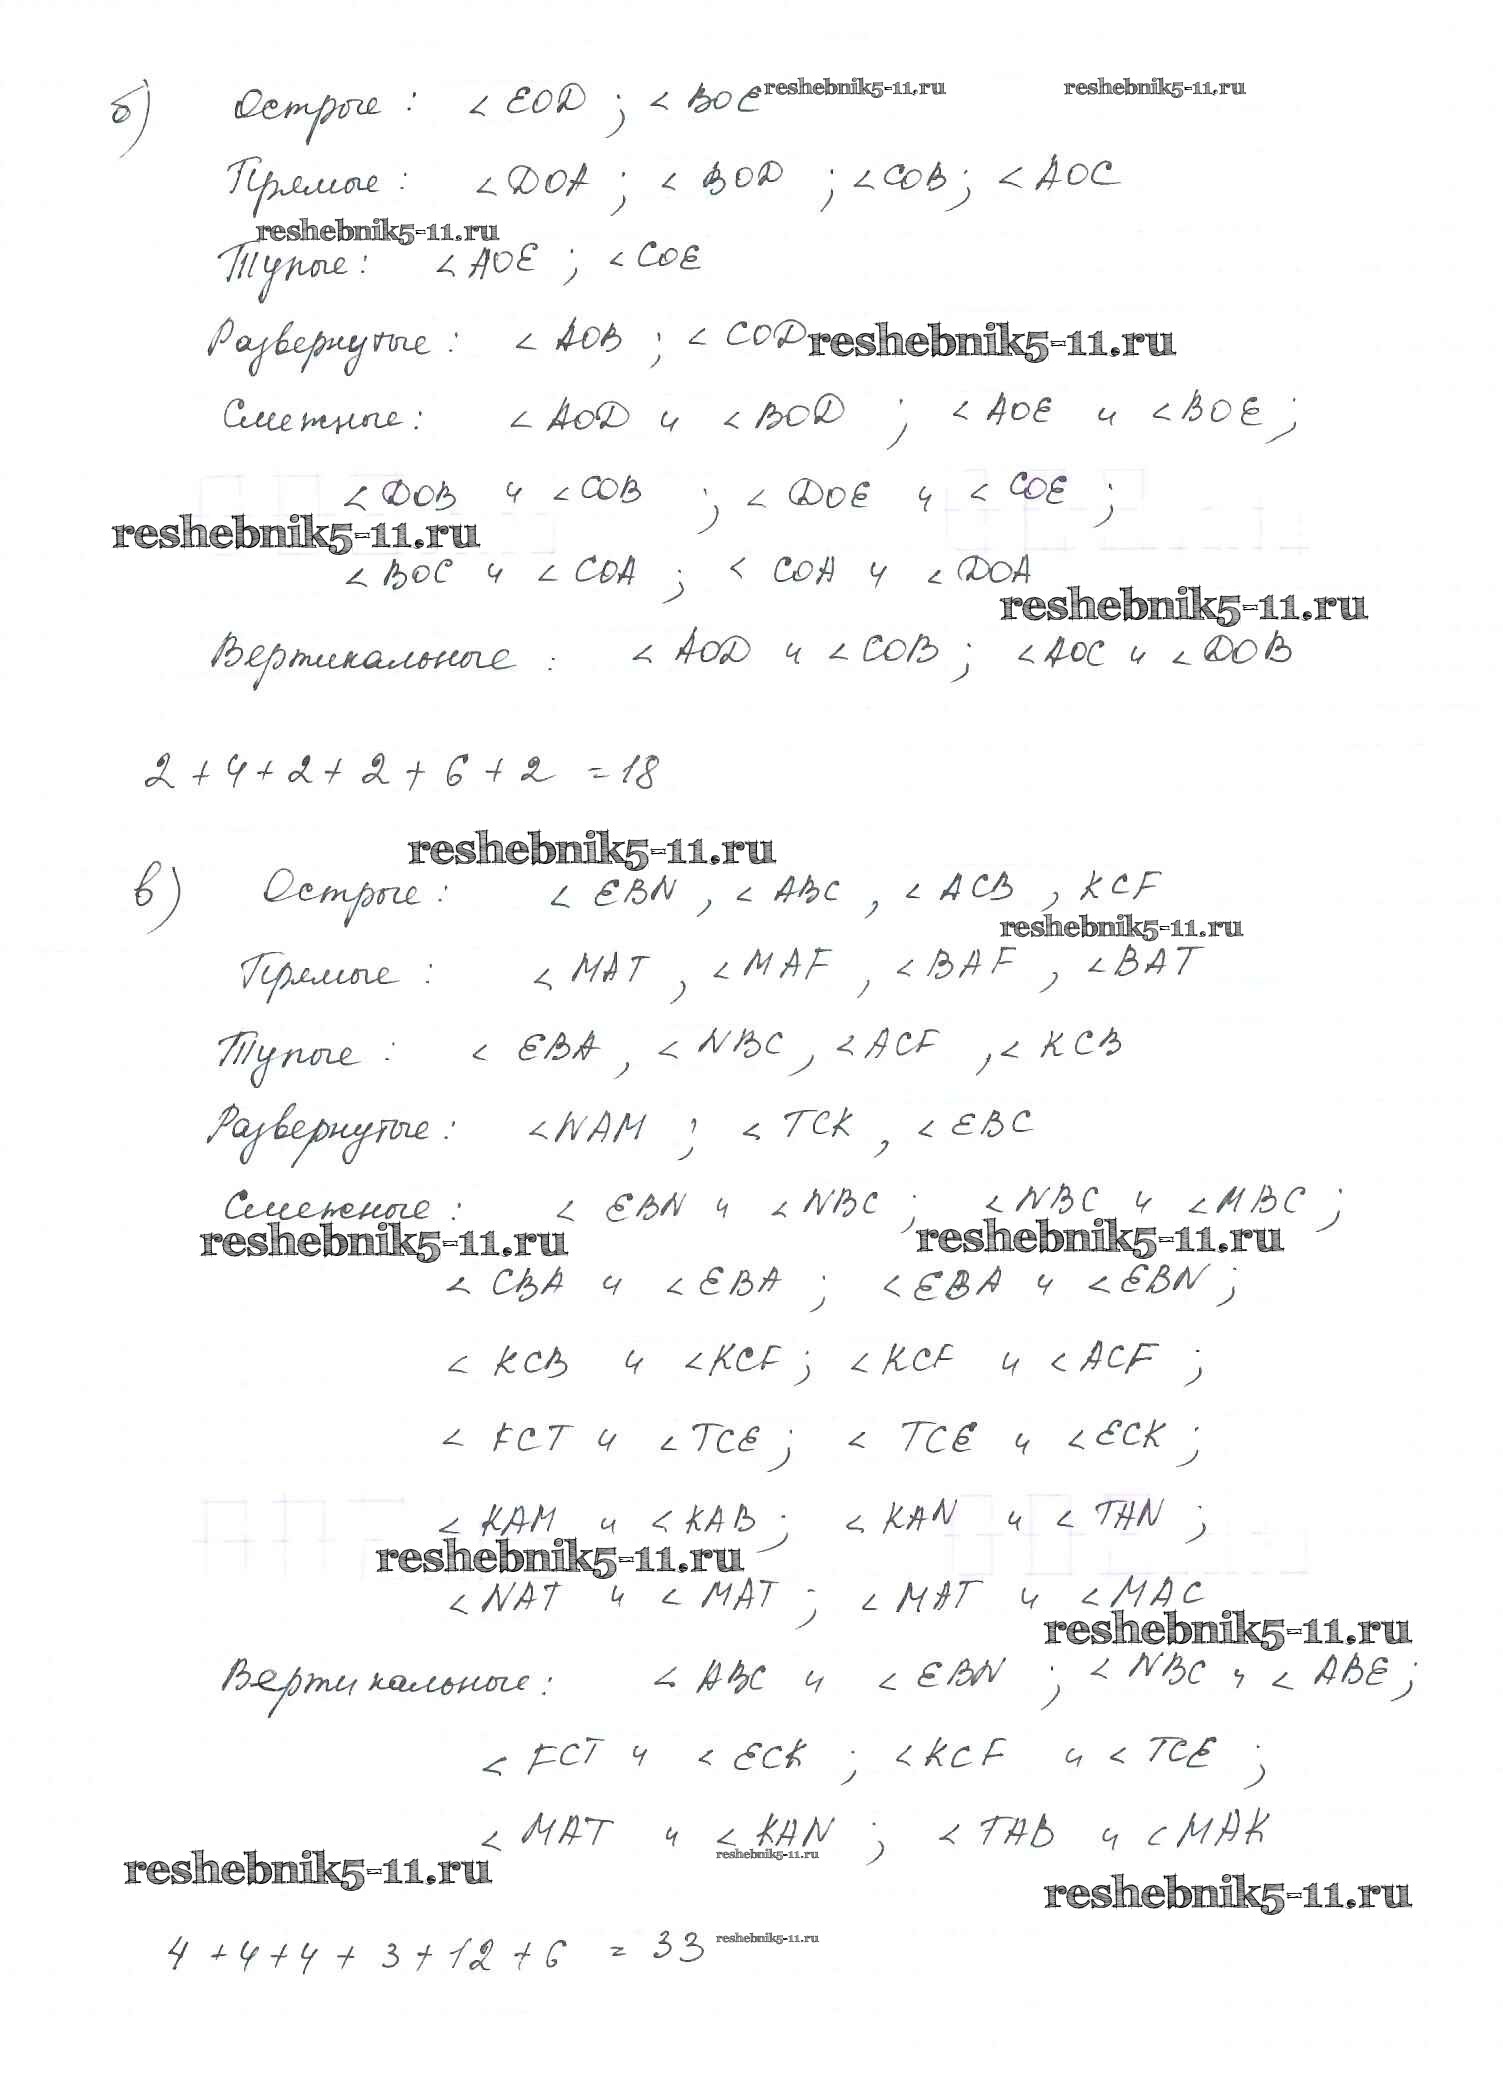 б) Острые: <EOD ; <BOE reshebnik5-11.ru reshebnik5-11.ru
Прямые: <DOA ; <BOD ; <COB ; <AOC
reshebnik5-11.ru
Тупые: <AOE ; <COE
Развернутые: <AOB ; <COD reshebnik5-11.ru
Смежные: <AOD и <BOD ; <AOE и <BOE ;
<DOB и <COB ; <DOE и <COE ;
reshebnik5-11.ru
<BOC и <COA ; <COA и <DOA
reshebnik5-11.ru
Вертикальные: <AOD и <COB ; <AOC и <DOB
2+4+2+2+6+2 =18
reshebnik5-11.ru
в) Острые: <EBN , <ABC , <ACB , KCF
reshebnik5-11.ru
Прямые: <MAT , <MAF , <BAF , <BAT
Тупые: <EBA , <NBC , <ACF , <KCB
Развернутые: <NAM ; <TCK , <EBC
Смежные: <EBN и <NBC ; <NBC и <MBC ;
reshebnik5-11.ru reshebnik5-11.ru
<CBA и <EBA ; <EBA и <EBN ;
<KCB и <KCF ; <KCF и <ACF ;
<FCT и <TCE ; <TCE и <ECK ;
<KAM и <KAB ; <KAN и <TAN ;
reshebnik5-11.ru
<NAT и <MAT ; <MAT и <MAC
reshebnik5-11.ru
Вертикальные: <ABC и <EBN ; <NBC и <ABE ;
<FCT и <ECK ; <KCF и <TCE ;
<MAT и <KAN ; <TAB и <MAK
reshebnik5-11.ru
reshebnik5-11.ru reshebnik5-11.ru
4+4+4+3+12+6 = 33 reshebnik5-11.ru